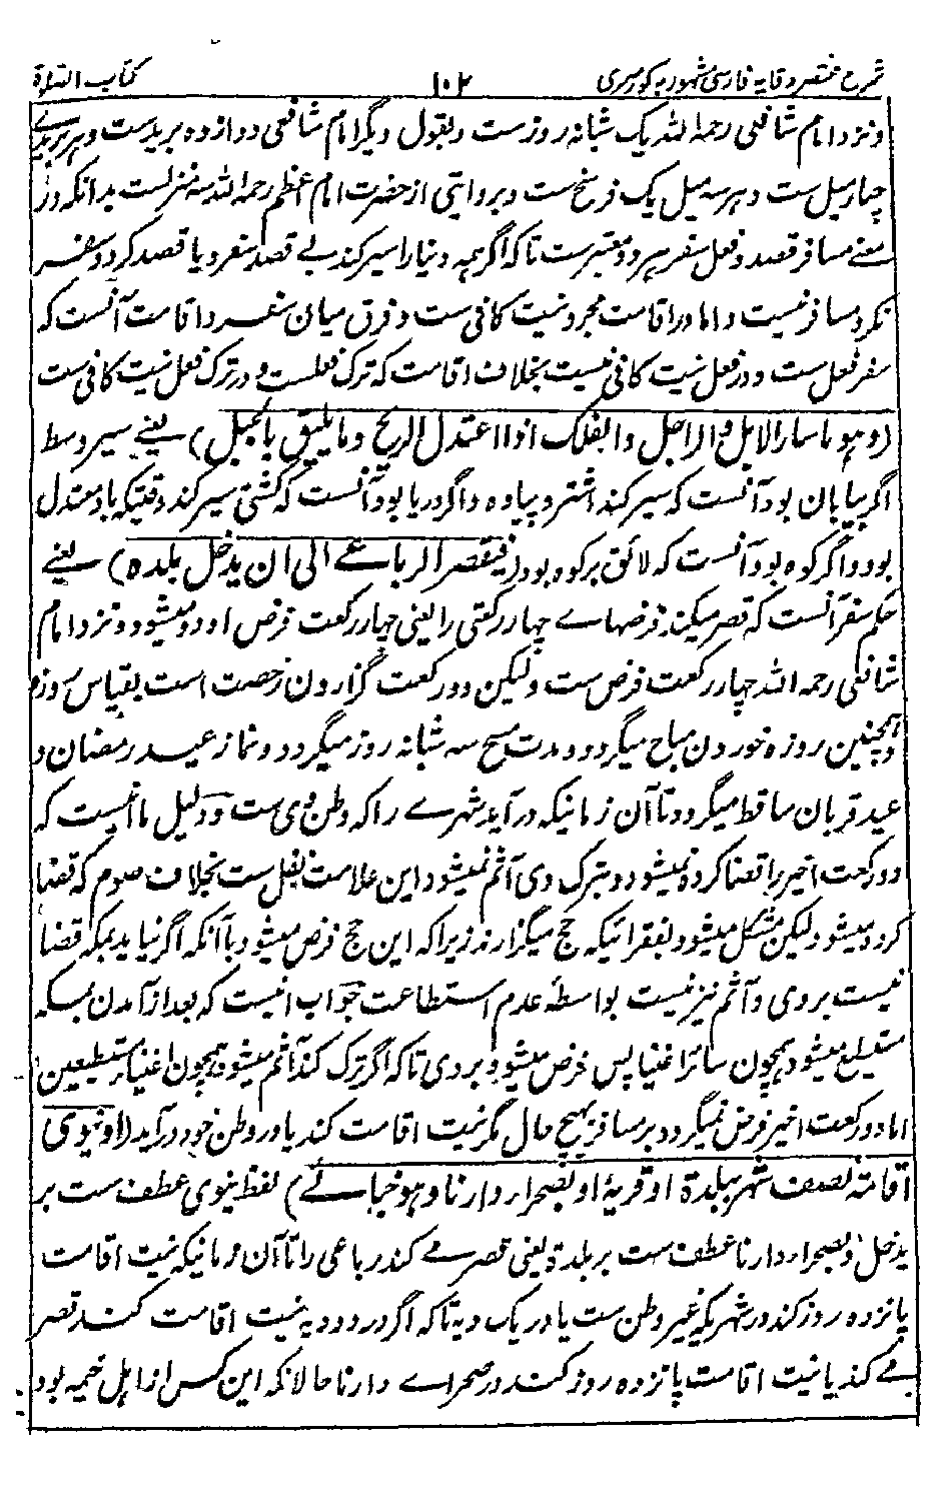 شرح مختصر وقایه فارسی مشهور به کور میری ۱۰۲ کتاب الصلاة
و نزد امام شافعی رحمه الله یک شبانه روزست و بقول دیگر امام شافعی دوازده بریدست و هر بریدے
چهار میل ست و هر سه میل یک فرسخ ست و بروایتی از حضرت امام اعظم رحمه الله سه منزلست بدانکه در
معنے مسافر قصد و فعل سفر هر دو معتبرست تا که اگر همه دنیا را سیر کند بے قصد سفر و یا قصد کرد و سفر
نکرد مسافر نیست و اما در اقامت مجرد نیت کافی ست و فرق میان سفر و اقامت آنست که
سفر فعل ست و در فعل نیت کافی نیست بخلاف اقامت که ترک فعلست و در ترک فعل نیت کافی ست
(و هو ما سار الابل و الراجل و الفلک اذا اعتدل الریح و ما یلیق بالجبل) یعنے سیر وسط
اگر بیابان بود آنست که سیر کند اشتر و پیاده و اگر دریا بود آنست که کشتی سیر کند وقتیکه باد معتدل
بود و اگر کوه بود آنست که لائق بر کوه بود (فیقصر الرباعے الی ان یدخل بلده) یعنے
حکم سفر آنست که قصر میکند فرضهاے چهار رکعتی را یعنی چهار رکعت فرض او دو میشود و نزد امام
شافعی رحمه الله چهار رکعت فرض ست ولیکن دو رکعت گزاردن رخصت است بقیاس روزه
و همچنین روزه خوردن مباح میگردد و مدت مسح سه شبانه روز میگردد و نماز عید رمضان و
عید قربان ساقط میگردد تا آن زمانیکه در آید شهرے را که وطن وی ست و دلیل ما اینست که
دو رکعت اخیر را قضا کرده نمیشود و بترک وی آثم نمیشود این علامت نفل ست بخلاف صوم که قضا
کرده میشود لیکن مشکل میشود بفقرائیکه حج میگزارند زیرا که این حج فرض میشود با آنکه اگر نیاید بمکه قضا
نیست بر وی و آثم نیز نیست بواسطه عدم استطاعت جواب اینست که بعد از آمدن بمکه
مستطیع میشود همچون سائر اغنیا پس فرض میشود بر وی تا که اگر ترک کند آثم میشود همچون اغنیاء مستطیعین
اما دو رکعت اخیر فرض نمیگردد بر مسافر بهیچ حال مگر نیت اقامت کند یا در وطن خود در آید (او ینوی
اقامة نصف شهر ببلدة او قریة او بصحراء دارنا و هو خبائے) لفظ ینوی عطف ست بر
یدخل و بصحراء دارنا عطف ست بر بلدة یعنی قصر مے کند رباعی را تا آن زمانیکه نیت اقامت
پانزده روز کند در شهریکه غیر وطن ست یا در یک دیه تا که اگر در دو دیه نیت اقامت کند قصر
مے کند یا نیت اقامت پانزده روز کند در صحراے دارنا حالانکه این کس از اهل خیمه بود